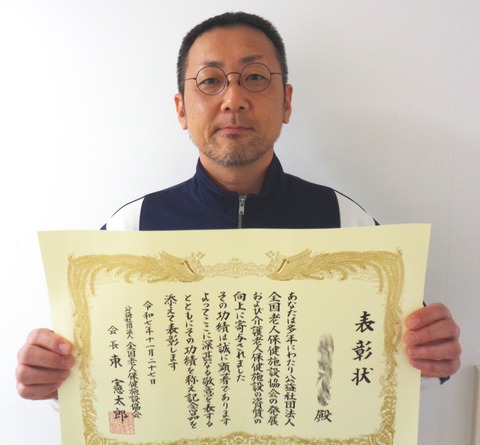 表彰状
殿
あなたは多年にわたり公益社団法人
全国老人保健施設協会の発展
および介護老人保健施設の資質の
向上に寄与されました
その功績は誠に顕著であります
よってここに深甚なる敬意を表する
とともにその功績を称え記念品を
添えて表彰します
令和七年十一月二十七日
公益社団法人 全国老人保健施設協会
会長 東 憲太郎